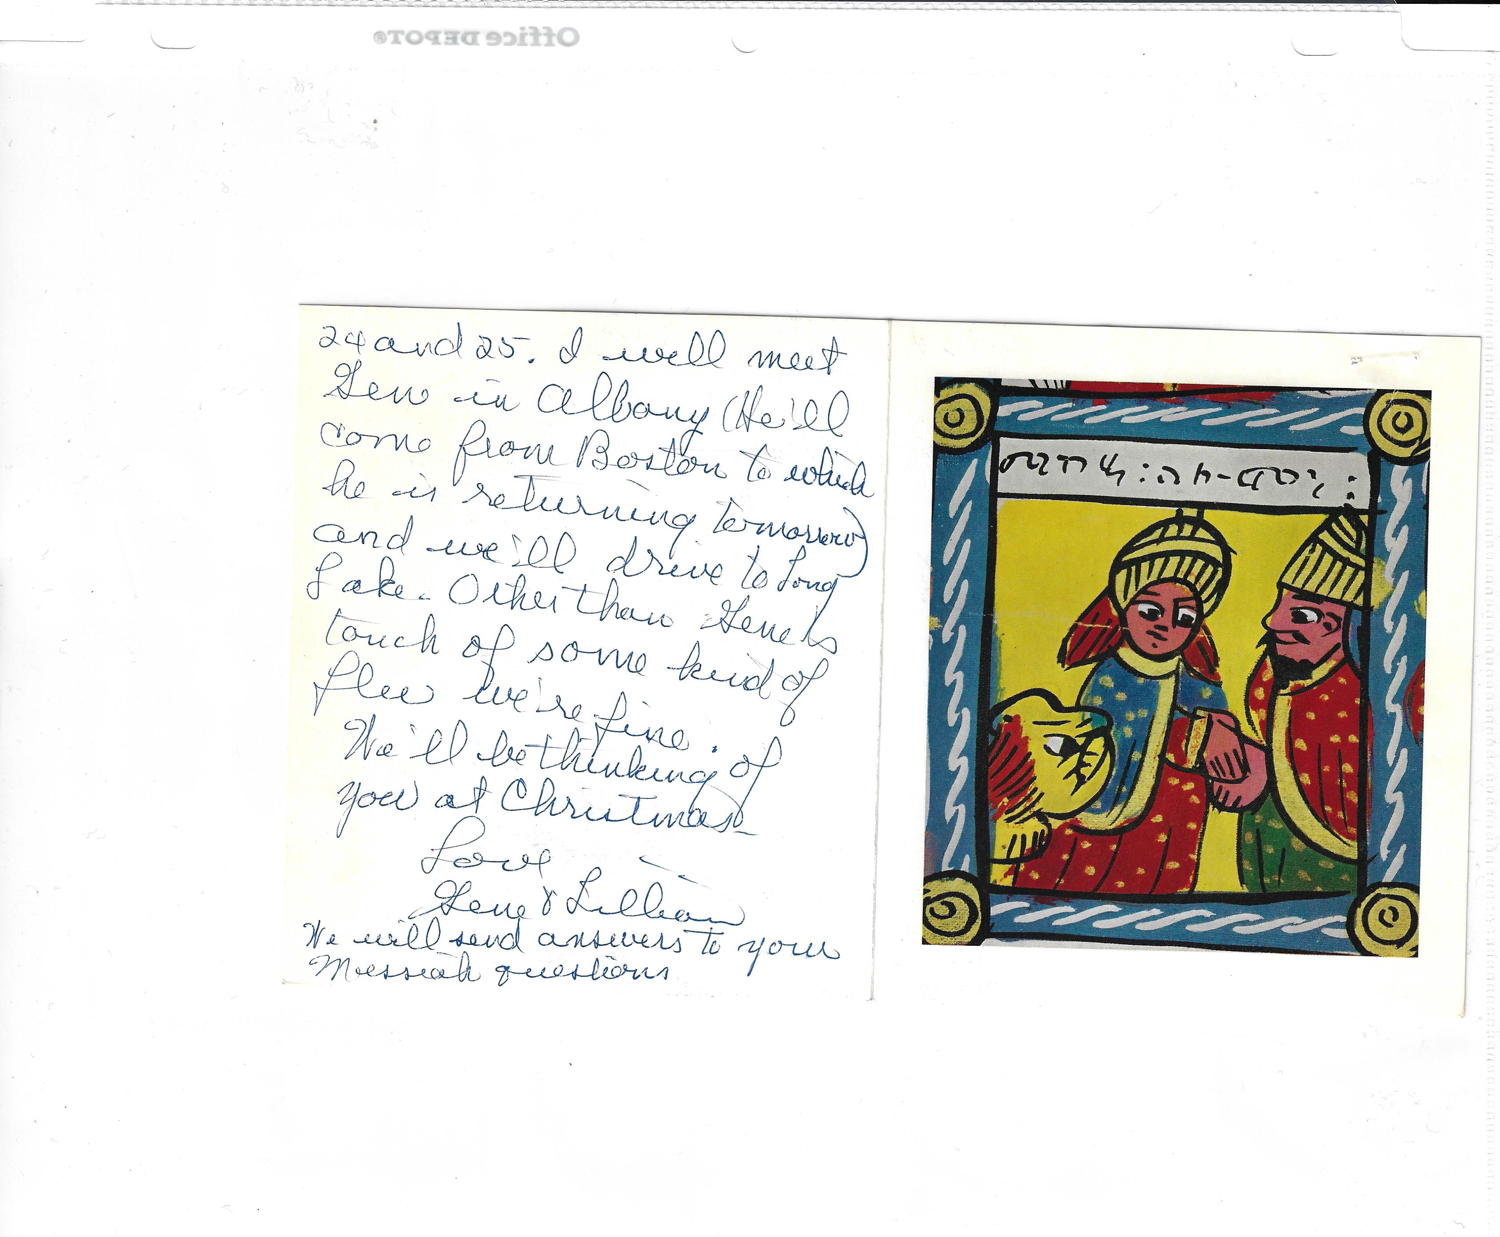 Office DEPOT®
24 and 25. I will meet
Gene in Albany (He'll
come from Boston to which
he is returning tomorrow)
and we'll drive to Long
Lake. Other than Gene's
touch of some kind of
flu we're fine.
We'll be thinking of
you at Christmas
Love
Gene & Lillian
We will send answers to your
Messiah questions